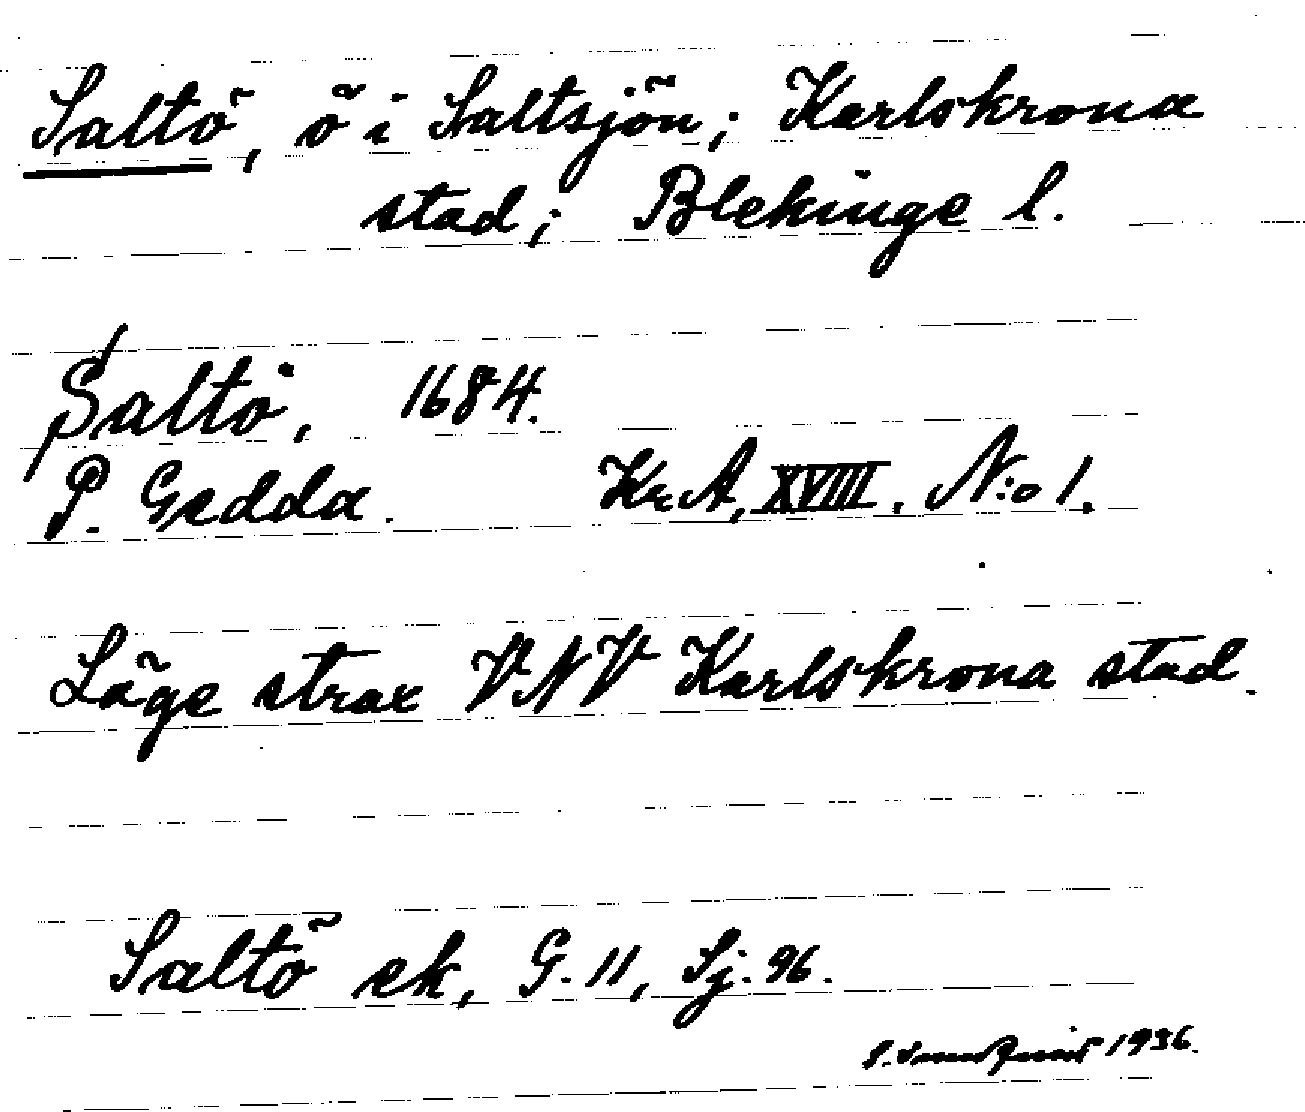 Saltö, ö i Saltsjön; Karlskrona
stad; Blekinge l.
Saltö, 1684.
P. Gedda. Kr.A, XVIII. N:o 1.
Läge strax VNV Karlskrona stad.
Saltö ek, G. 11, Sj. 96.
1936.